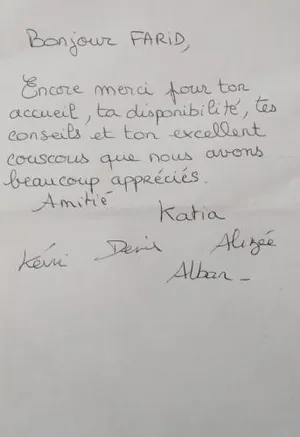 Bonjour FARID,
Encore merci pour ton
accueil, ta disponibilité, tes
conseils et ton excellent
couscous que nous avons
beaucoup appréciés.
Amitié
Katia
Kévi Denis Alizée
Alban_